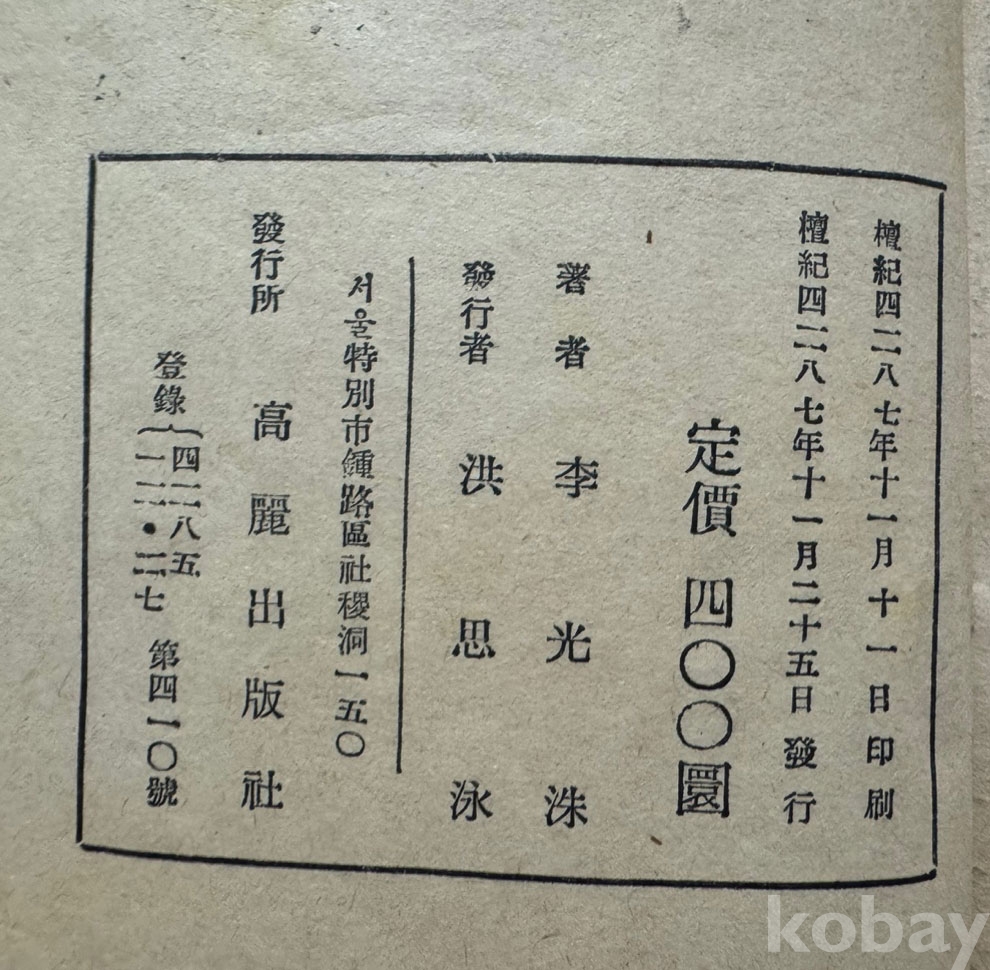 檀紀四二八七年十一月十一日印刷
檀紀四二八七年十一月二十五日發行
定價 四〇〇圜
著者 李光洙
發行者 洪思泳
서울特別市鍾路區社稷洞一五〇
發行所 高麗出版社
登錄{四二八五
一二•二七 第四一〇號
kobay